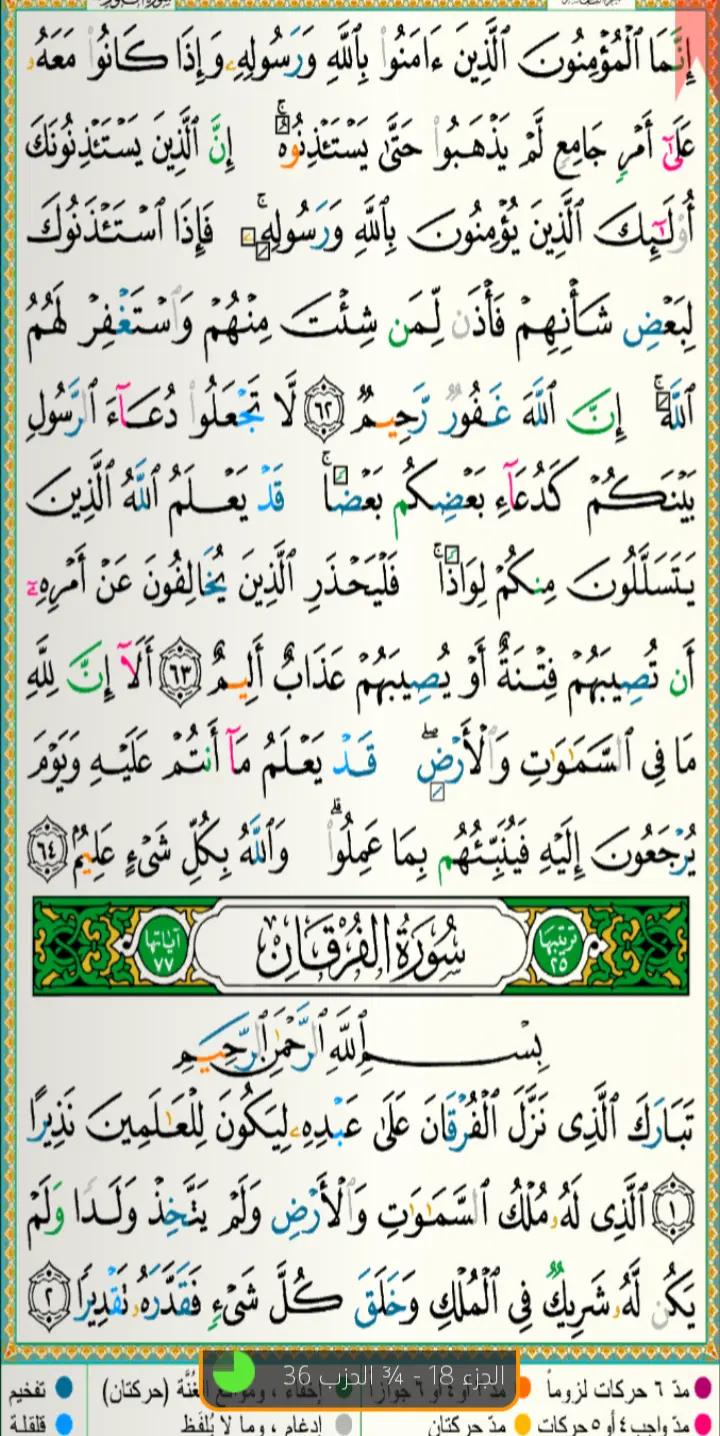 إِنَّمَا ٱلْمُؤْمِنُونَ ٱلَّذِينَ ءَامَنُوا۟ بِٱللَّهِ وَرَسُولِهِۦ وَإِذَا كَانُوا۟ مَعَهُۥ
عَلَىٰٓ أَمْرٍ جَامِعٍ لَّمْ يَذْهَبُوا۟ حَتَّىٰ يَسْتَـْٔذِنُوهُ ۚ إِنَّ ٱلَّذِينَ يَسْتَـْٔذِنُونَكَ
أُو۟لَـٰٓئِكَ ٱلَّذِينَ يُؤْمِنُونَ بِٱللَّهِ وَرَسُولِهِۦ ۚ فَإِذَا ٱسْتَـْٔذَنُوكَ
لِبَعْضِ شَأْنِهِمْ فَأْذَن لِّمَن شِئْتَ مِنْهُمْ وَٱسْتَغْفِرْ لَهُمُ
ٱللَّهَ ۚ إِنَّ ٱللَّهَ غَفُورٌ رَّحِيمٌ ٦٢ لَّا تَجْعَلُوا۟ دُعَآءَ ٱلرَّسُولِ
بَيْنَكُمْ كَدُعَآءِ بَعْضِكُم بَعْضًا ۚ قَدْ يَعْلَمُ ٱللَّهُ ٱلَّذِينَ
يَتَسَلَّلُونَ مِنكُمْ لِوَاذًا ۚ فَلْيَحْذَرِ ٱلَّذِينَ يُخَالِفُونَ عَنْ أَمْرِهِۦٓ
أَن تُصِيبَهُمْ فِتْنَةٌ أَوْ يُصِيبَهُمْ عَذَابٌ أَلِيمٌ ٦٣ أَلَآ إِنَّ لِلَّهِ
مَا فِى ٱلسَّمَـٰوَٰتِ وَٱلْأَرْضِ ۖ قَدْ يَعْلَمُ مَآ أَنتُمْ عَلَيْهِ وَيَوْمَ
يُرْجَعُونَ إِلَيْهِ فَيُنَبِّئُهُم بِمَا عَمِلُوا۟ ۗ وَٱللَّهُ بِكُلِّ شَىْءٍ عَلِيمٌۢ ٦٤
ترتيبها ٢٥ سُورَةُ الفُرْقَانِ آياتها ٧٧
بِسْمِ ٱللَّهِ ٱلرَّحْمَـٰنِ ٱلرَّحِيمِ
تَبَارَكَ ٱلَّذِى نَزَّلَ ٱلْفُرْقَانَ عَلَىٰ عَبْدِهِۦ لِيَكُونَ لِلْعَـٰلَمِينَ نَذِيرًا
١ ٱلَّذِى لَهُۥ مُلْكُ ٱلسَّمَـٰوَٰتِ وَٱلْأَرْضِ وَلَمْ يَتَّخِذْ وَلَدًا وَلَمْ
يَكُن لَّهُۥ شَرِيكٌ فِى ٱلْمُلْكِ وَخَلَقَ كُلَّ شَىْءٍ فَقَدَّرَهُۥ تَقْدِيرًا ٢
الجزء 18 - ¾ الحزب 36
مدّ ٦ حركات لزوماً إخفاء ، ومواقع الغُنَّة (حركتان) تفخيم
مدّ واجب ٤ أو ٥ حركات مدّ حركتان إدغام ، وما لا يُلفَظ قلقلة